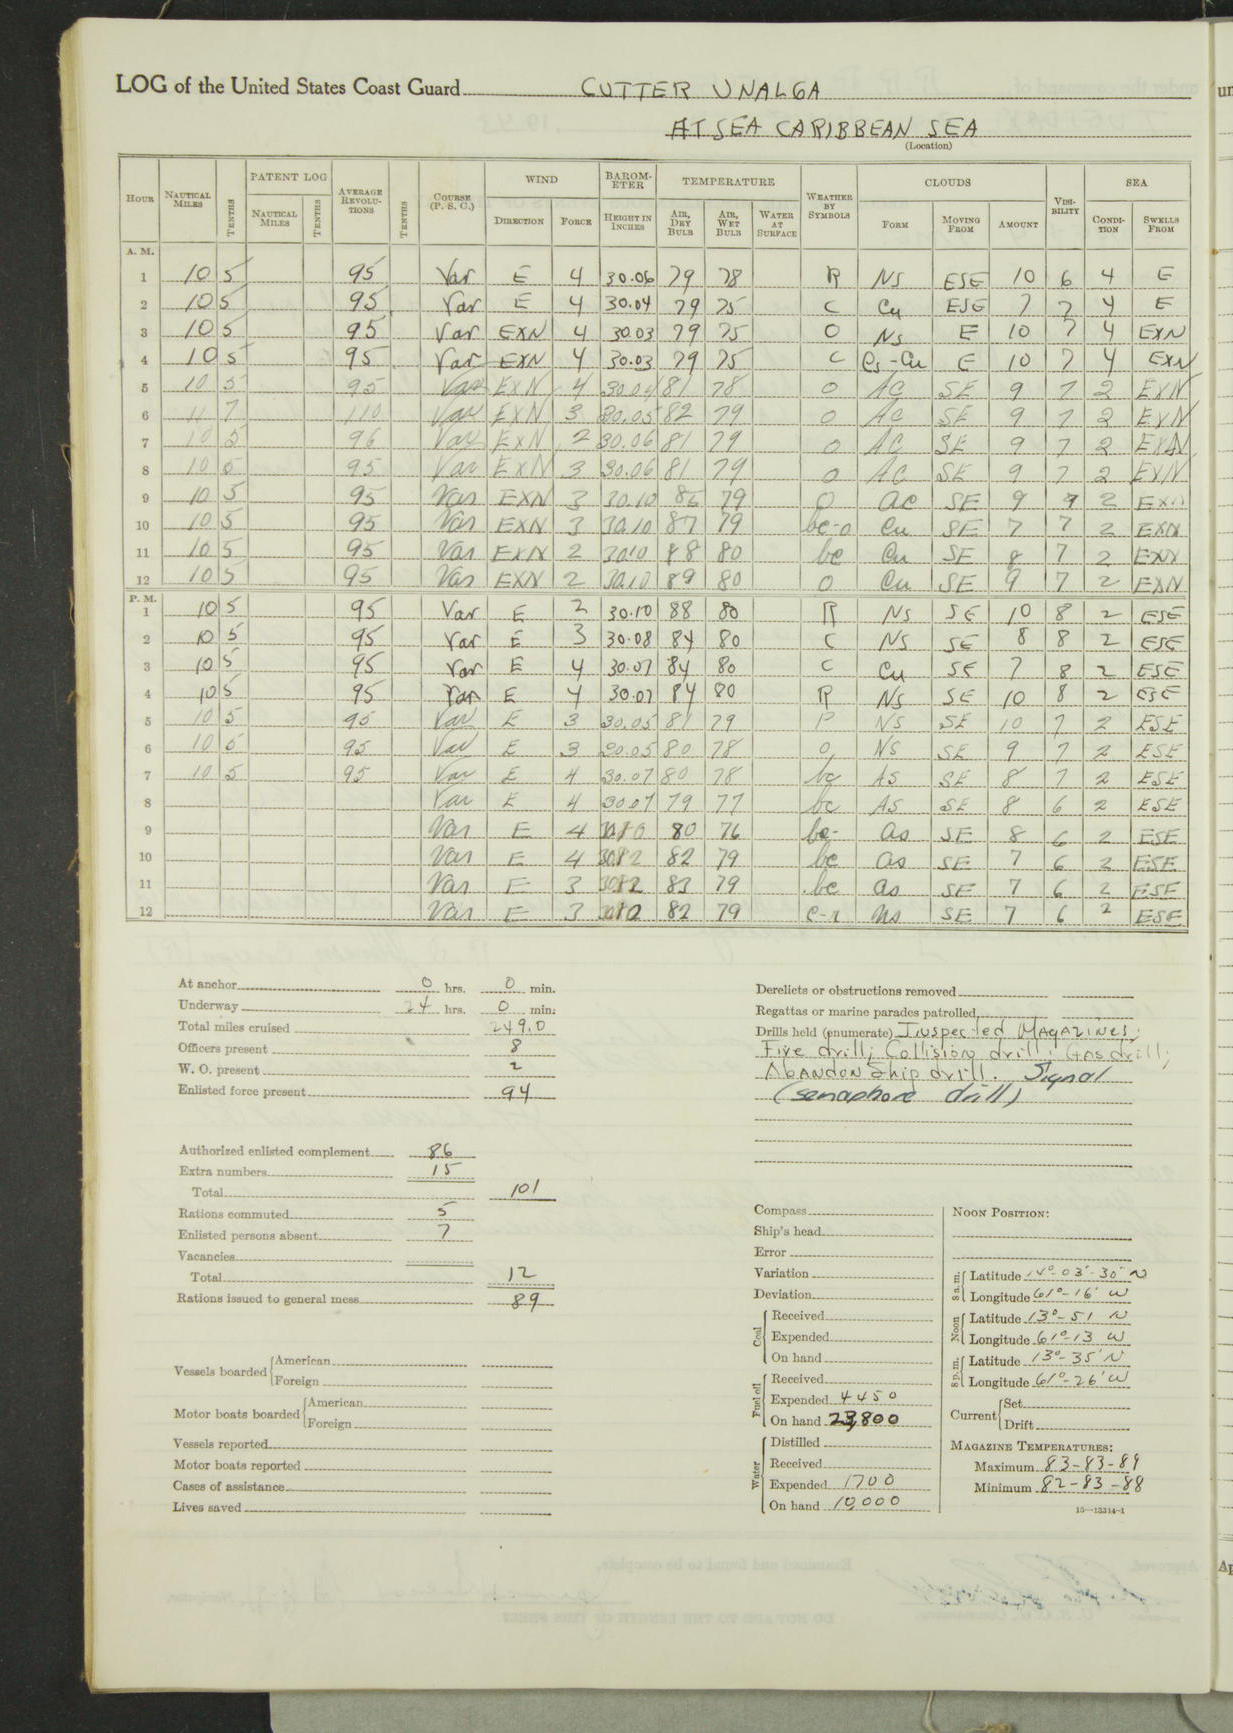 LOG of the United States Coast Guard CUTTER UNALGA
AT SEA CARIBBEAN SEA
(Location)
HOUR NAUTICAL MILES TENTHS PATENT LOG NAUTICAL MILES TENTHS AVERAGE REVOLUTIONS TENTHS COURSE (P. S. C.) WIND DIRECTION FORCE BAROMETER HEIGHT IN INCHES TEMPERATURE AIR, DRY BULB AIR, WET BULB WATER AT SURFACE WEATHER BY SYMBOLS CLOUDS FORM MOVING FROM AMOUNT VISIBILITY SEA CONDITION SWELLS FROM
A. M.
1 10 5 95 Var E 4 30.06 79 78 R NS ESE 10 6 4 E
2 10 5 95 Var E 4 30.04 79 75 C Cu ESE 7 7 4 E
3 10 5 95 Var EXN 4 30.03 79 75 O NS E 10 7 4 EXN
4 10 5 95 Var EXN 4 30.03 79 75 C Cs-Cu E 10 7 4 EXN
5 10 5 95 Var EXN 4 30.04 81 78 O AC SE 9 7 2 EXN
6 11 7 110 Var EXN 3 30.05 82 79 O AC SE 9 7 2 EXN
7 10 5 96 Var EXN 2 30.06 81 79 O AC SE 9 7 2 EXN
8 10 5 95 Var EXN 3 30.06 81 79 O AC SE 9 7 2 EXN
9 10 5 95 Var EXN 3 30.10 86 79 O ac SE 9 7 2 EXN
10 10 5 95 Var EXN 3 30.10 87 79 bc-o Cu SE 7 7 2 EXN
11 10 5 95 Var EXN 2 30.10 88 80 bc Cu SE 8 7 2 EXN
12 10 5 95 Var EXN 2 30.10 89 80 O Cu SE 9 7 2 EXN
P. M.
1 10 5 95 Var E 2 30.10 88 80 R NS SE 10 8 2 ESE
2 10 5 95 Var E 3 30.08 84 80 C NS SE 8 8 2 ESE
3 10 5 95 Var E 4 30.07 84 80 C Cu SE 7 8 2 ESE
4 10 5 95 Var E 4 30.07 84 80 R NS SE 10 8 2 ESE
5 10 5 95 Var E 3 30.05 81 79 P NS SE 10 7 2 ESE
6 10 5 95 Var E 3 30.05 80 78 O NS SE 9 7 2 ESE
7 10 5 95 Var E 4 30.07 80 78 bc AS SE 8 7 2 ESE
8 Var E 4 30.07 79 77 bc AS SE 8 6 2 ESE
9 Var E 4 80 76 bc- as SE 8 6 2 ESE
10 Var E 4 82 79 bc as SE 7 6 2 ESE
11 Var E 3 83 79 bc as SE 7 6 2 ESE
12 Var E 3 82 79 c-r ns SE 7 6 2 ESE
At anchor 0 hrs. 0 min.
Underway 24 hrs. 0 min.
Total miles cruised 249.0
Officers present 8
W. O. present 2
Enlisted force present 94
Authorized enlisted complement 86
Extra numbers 15
Total 101
Rations commuted 5
Enlisted persons absent 7
Vacancies
Total 12
Rations issued to general mess 89
Vessels boarded American
Foreign
Motor boats boarded American
Foreign
Vessels reported
Motor boats reported
Cases of assistance
Lives saved
Derelicts or obstructions removed
Regattas or marine parades patrolled
Drills held (enumerate) Inspected Magazines;
Fire drill; Collision drill; Gas drill;
Abandon Ship drill. Signal
(semaphore drill)
Compass
Ship's head
Error
Variation
Deviation
Coal Received
Expended
On hand
Fuel oil Received
Expended 4450
On hand 23,800
Water Distilled
Received
Expended 1700
On hand 10,000
NOON POSITION:
8 a. m. Latitude 14°-03'-30" N
Longitude 61°-16' W
Noon Latitude 13°-51 N
Longitude 61°-13 W
8 p. m. Latitude 13°-35' N
Longitude 61°-26' W
Current Set
Drift
MAGAZINE TEMPERATURES:
Maximum 83-83-89
Minimum 82-83-88
16—13314-1